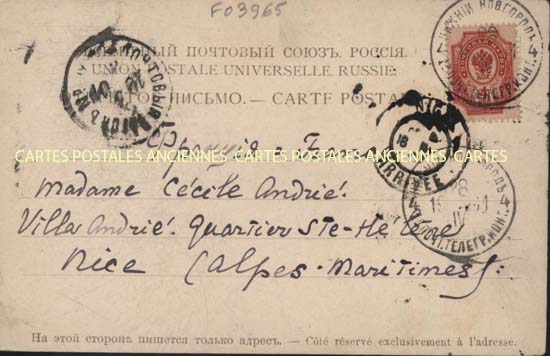 F03965
ВСЕМІРНЫЙ ПОЧТОВЫЙ СОЮЗЪ. РОССІЯ.
UNION POSTALE UNIVERSELLE. RUSSIE.
ПИСЬМО. — CARTE POSTALE
НИЖНІЙ НОВГОРОДЪ
ПОЧТ.ТЕЛЕГР.КОНТ.
Франція = France
CARTES POSTALES ANCIENNES CARTES POSTALES ANCIENNES CARTES POSTALES ANCIENNES
ARRIVEE
Madame Cécile Andrié.
Villa Andrié. Quartier Ste-Hélène
ПОЧТ.ТЕЛЕГР.КОНТ.
Nice (Alpes-Maritimes).
На этой сторонѣ пишется только адресъ. — Côté réservé exclusivement à l'adresse.